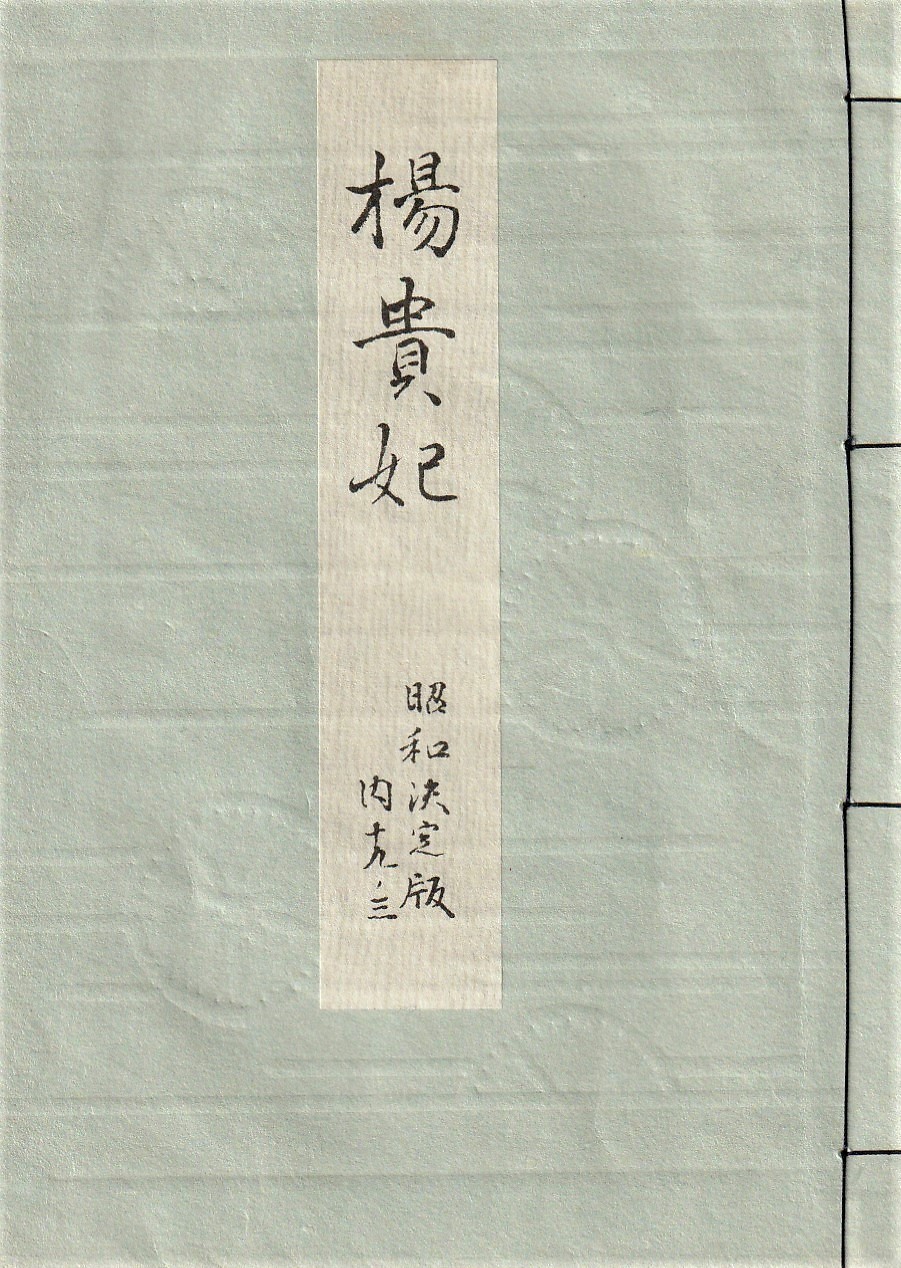 楊貴妃
昭和決定版
内九ノ三